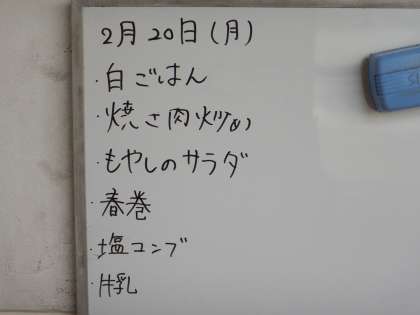 2月20日(月)
・白ごはん
・焼き肉炒め
・もやしのサラダ
・春巻
・塩コンブ
・牛乳